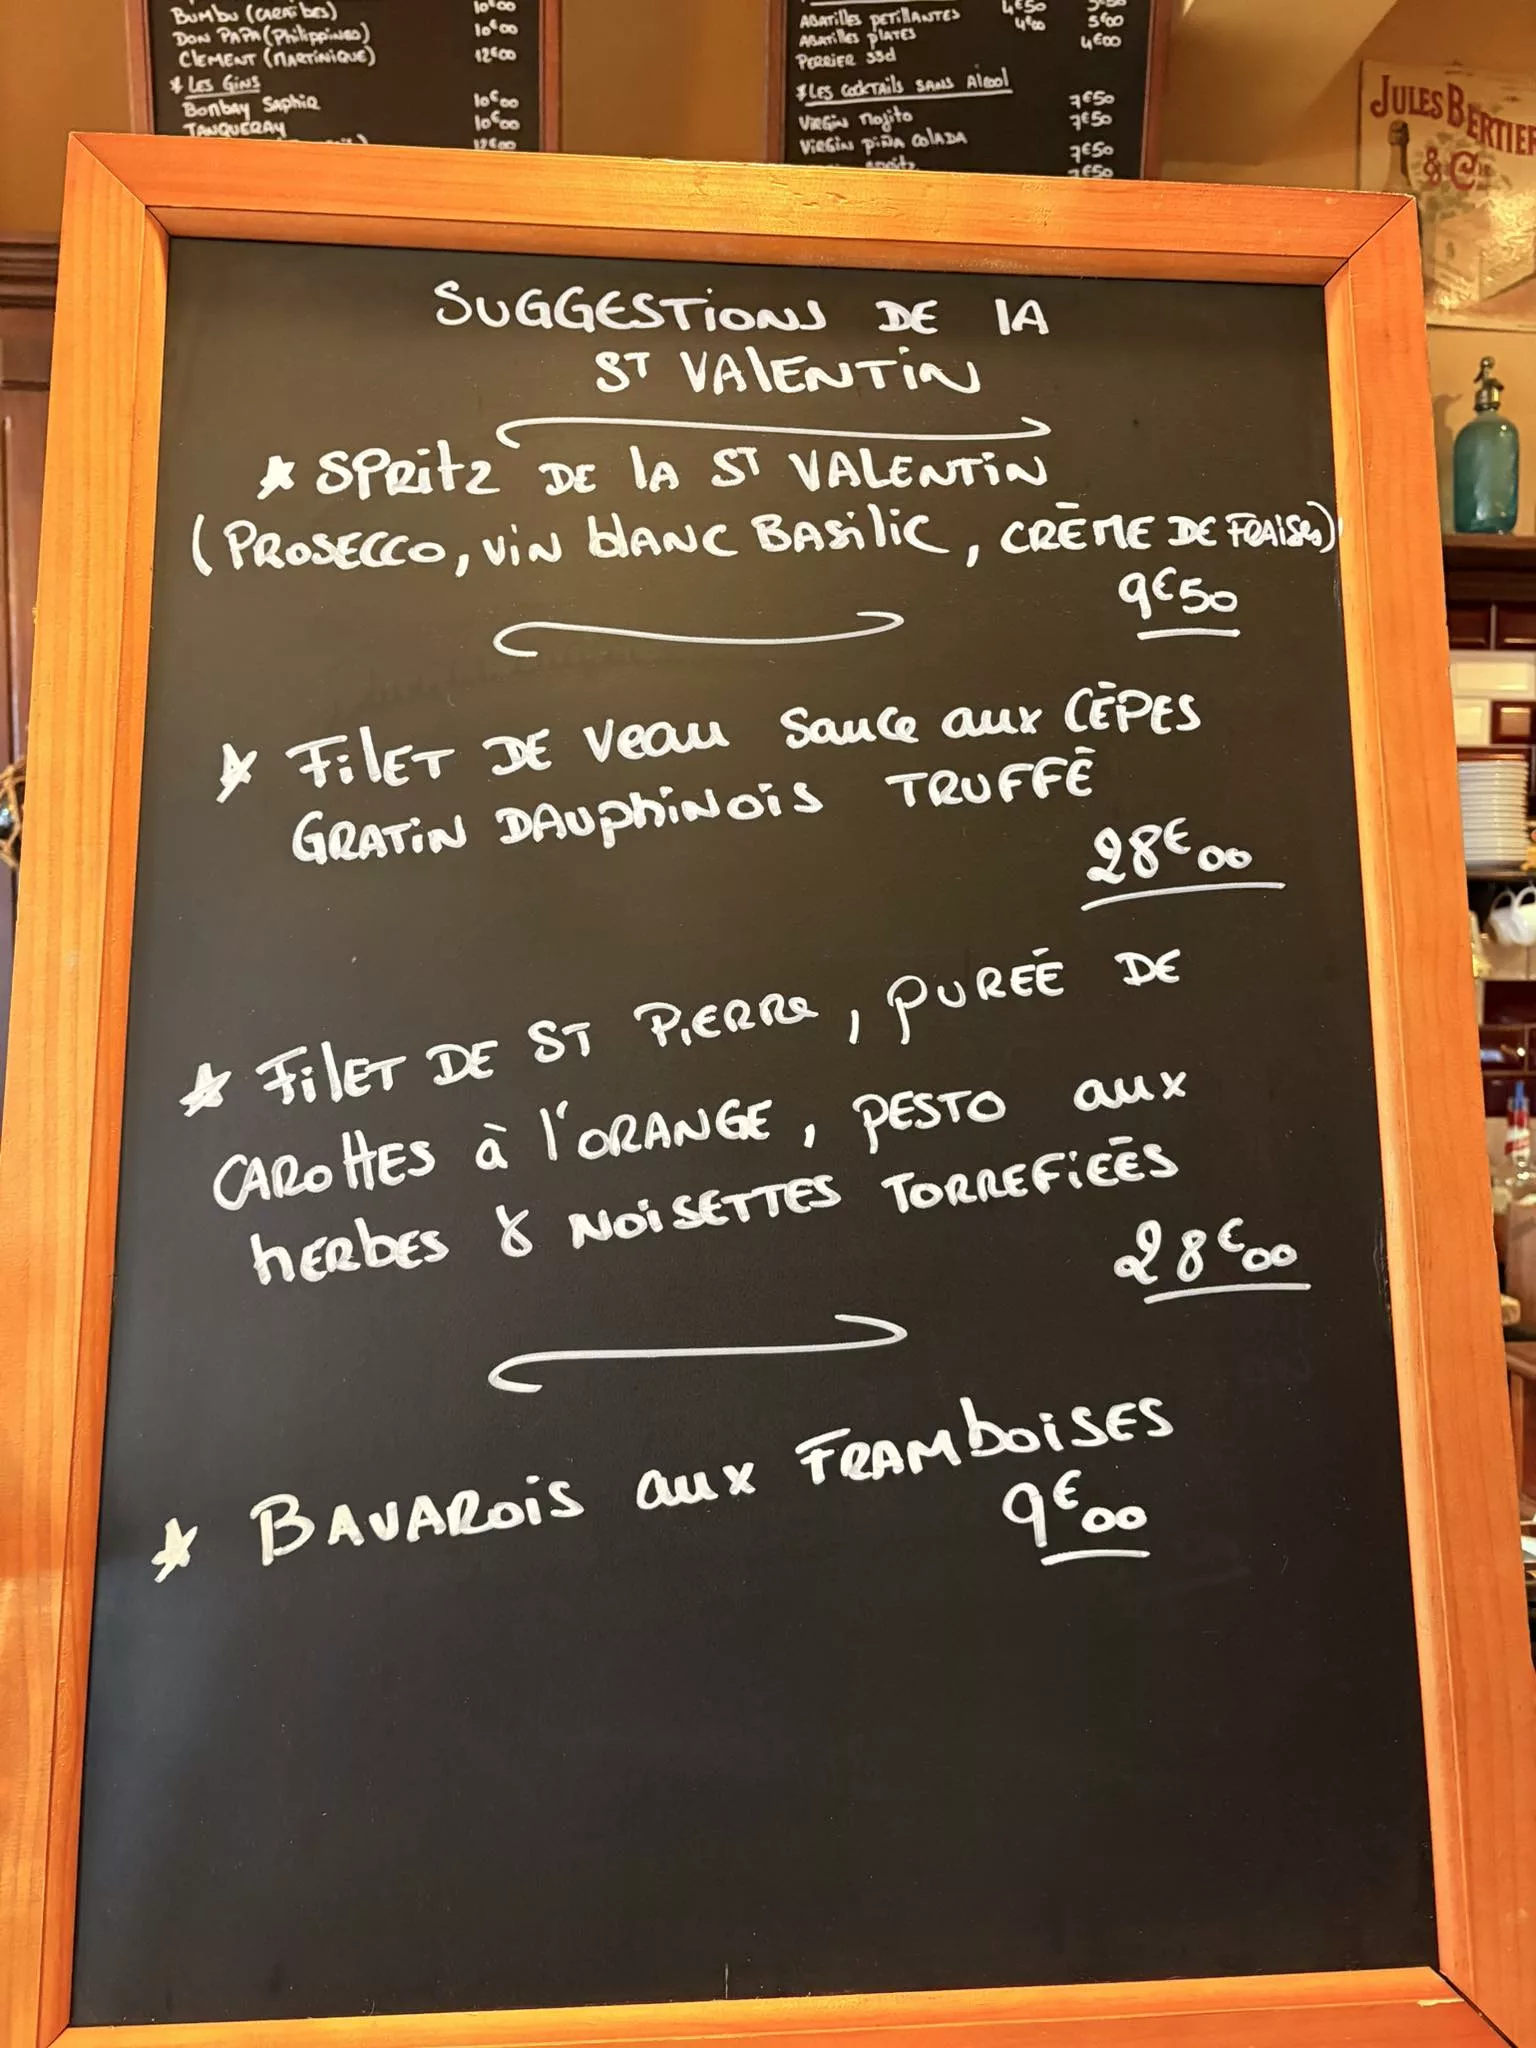 BUMBU (CARAÏBES) 10€00
DON PAPA (Philippines) 10€00
CLEMENT (MARTINIQUE) 12€00
* LES GINS
BONBAY SAPHIR 10€00
TANQUERAY 10€00
12€00
ABATILLES PETILLANTES 4€50
ABATILLES PLATES 4€00 5€00
PERRIER 33cl 4€00
* LES COCKTAILS SANS ALCOOL
VIRGIN MOJITO 7€50
VIRGIN PIÑA COLADA 7€50
7€50
7€50
JULES BERTIER
& Cie
SUGGESTIONS DE LA
ST VALENTIN
* SPRITZ DE LA ST VALENTIN
(PROSECCO, VIN BLANC BASILIC, CRÈME DE FRAISES)
9€50
* FILET DE VEAU SAUCE AUX CÈPES
GRATIN DAUPHINOIS TRUFFÉ
28€00
* FILET DE ST PIERRE, PUREÉ DE
CAROTTES à l'ORANGE, PESTO AUX
HERBES & NOISETTES TORREFIEÉS
28€00
* BAVAROIS AUX FRAMBOISES
9€00